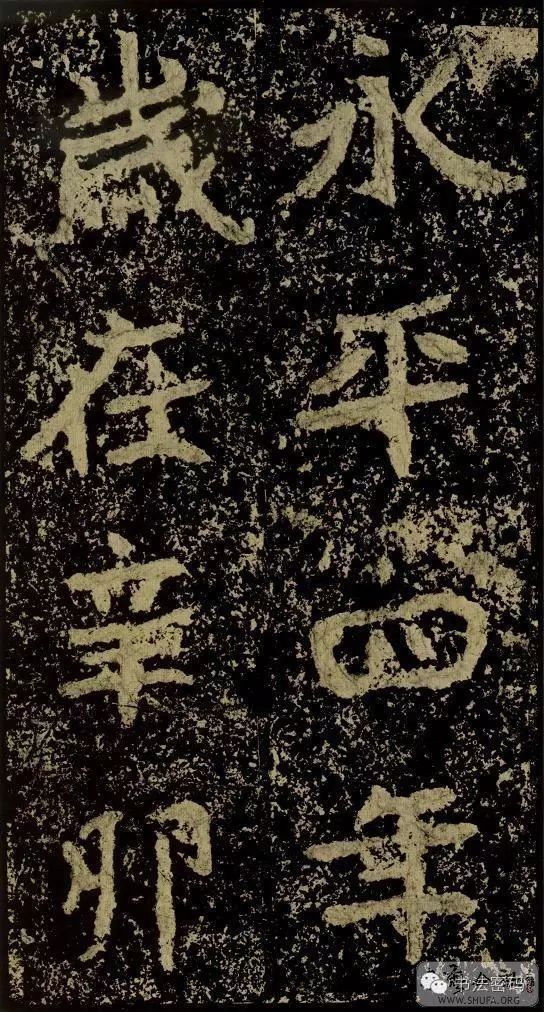 永平四年
歲在辛卯
书法密码
WWW.SHUFA.ORG